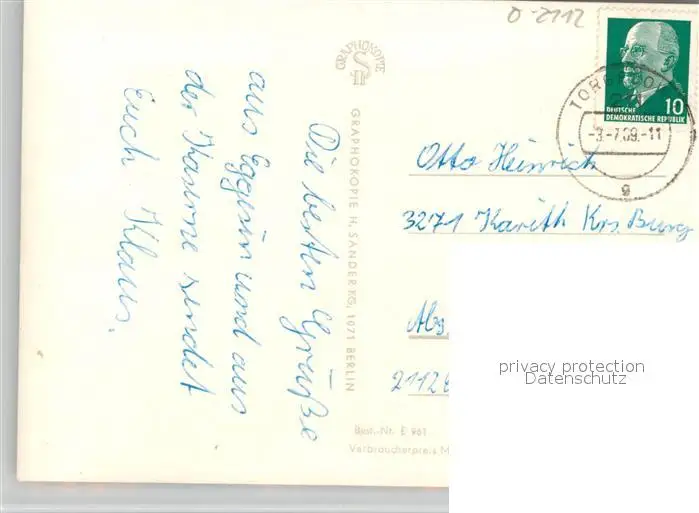 0-2112
GRAPHOKOPIE
DEUTSCHE
DEMOKRATISCHE REPUBLIK
10
-3.-7.69.-11
g
Die besten Grüße
aus Eggesin und aus
der Kaserne sendet
Euch Klaus.
GRAPHOKOPIE H. SANDER KG, 1071 BERLIN
Otto Heinrich
3271 Karith Krs. Burg
Abs.
2112
Best.-Nr. E 961
Verbraucherpreis M
privacy protection
Datenschutz